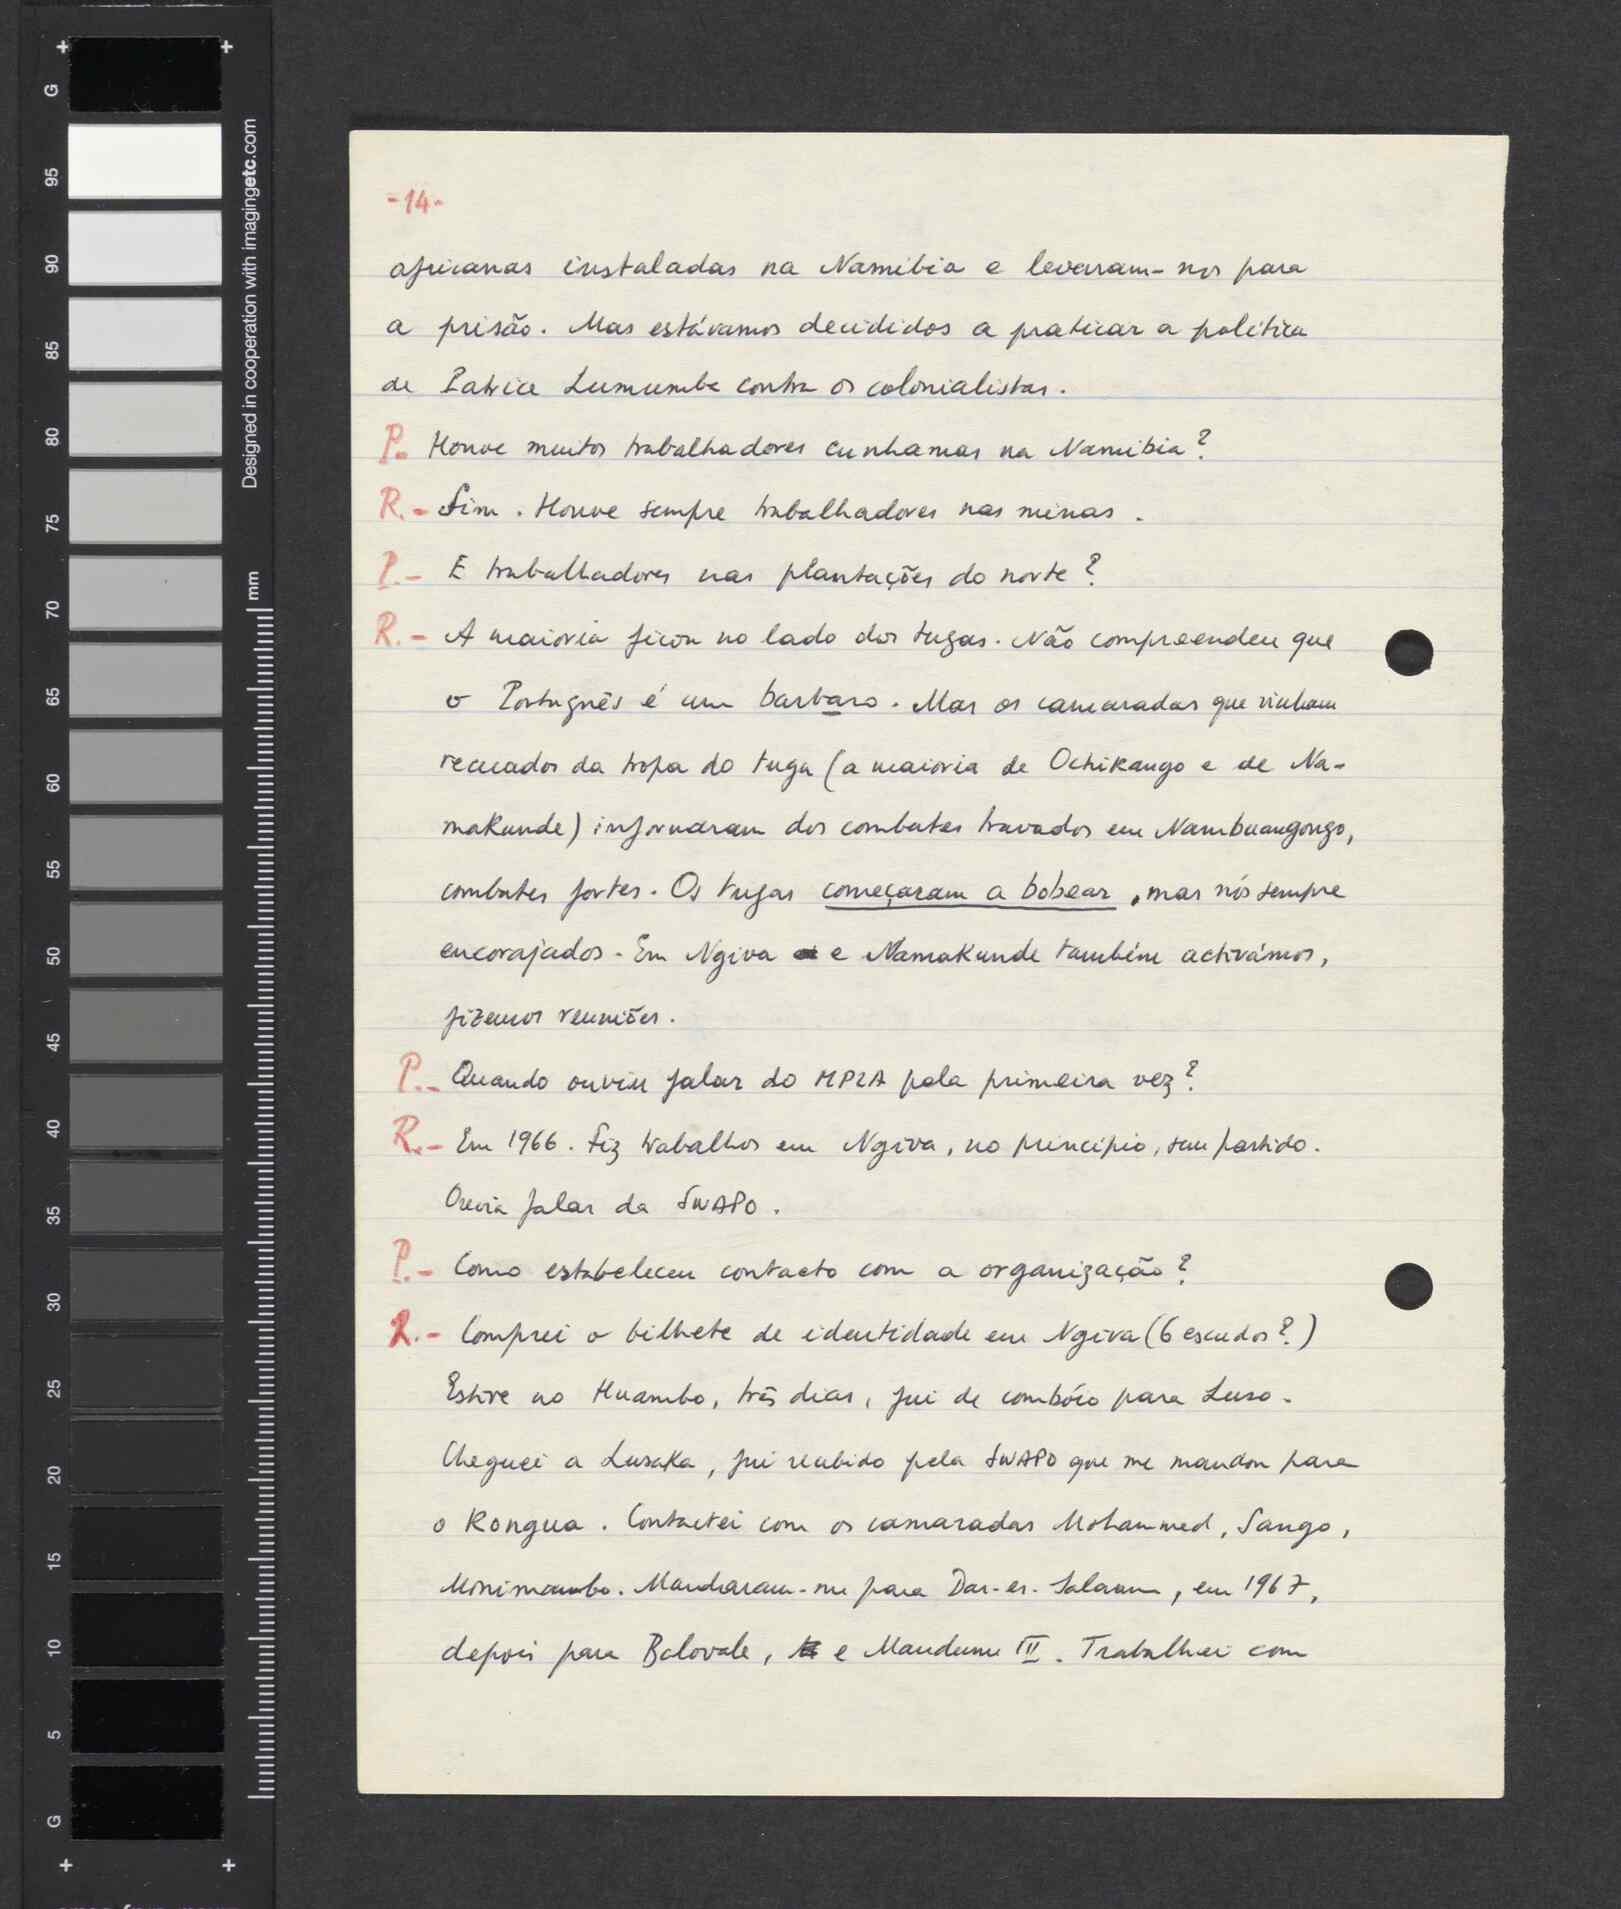 -14-
africanas instaladas na Namíbia e levaram-nos para
a prisão. Mas estávamos decididos a praticar a política
de Patrice Lumumba contra os colonialistas.
P. Houve muitos trabalhadores cunhamas na Namíbia?
R.- Sim. Houve sempre trabalhadores nas minas.
P.- E trabalhadores nas plantações do norte?
R.- A maioria ficou no lado dos tugas. Não compreendeu que
o Português é um barbaro. Mas os camaradas que vinham
recuados da tropa do tuga (a maioria de Ochikango e de Na-
makunde) informaram dos combates travados em Nambuangongo,
combates fortes. Os tugas começaram a bobear, mas nós sempre
encorajados. Em Ngiva e Namakunde também activámos,
fizemos reuniões.
P.- Quando ouviu falar do MPLA pela primeira vez?
R.- Em 1966. Fiz trabalhos em Ngiva, no princípio, sem partido.
Ouvia falar da SWAPO.
P.- Como estabeleceu contacto com a organização?
R.- Comprei o bilhete de identidade em Ngiva (6 escudos?)
Estive no Huambo, três dias, fui de combóio para Luso.
Cheguei a Lusaka, fui recebido pela SWAPO que me mandou para
o Kongua. Contactei com os camaradas Mohammed, Sango,
Monimambo. Mandaram-me para Dar-es-Salaam, em 1967,
depois para Balovale, e Mandume III. Trabalhei com
G
95
90
85
80
75
70
65
60
55
50
45
40
35
30
25
20
15
10
5
G
Designed in cooperation with imagingetc.com
mm